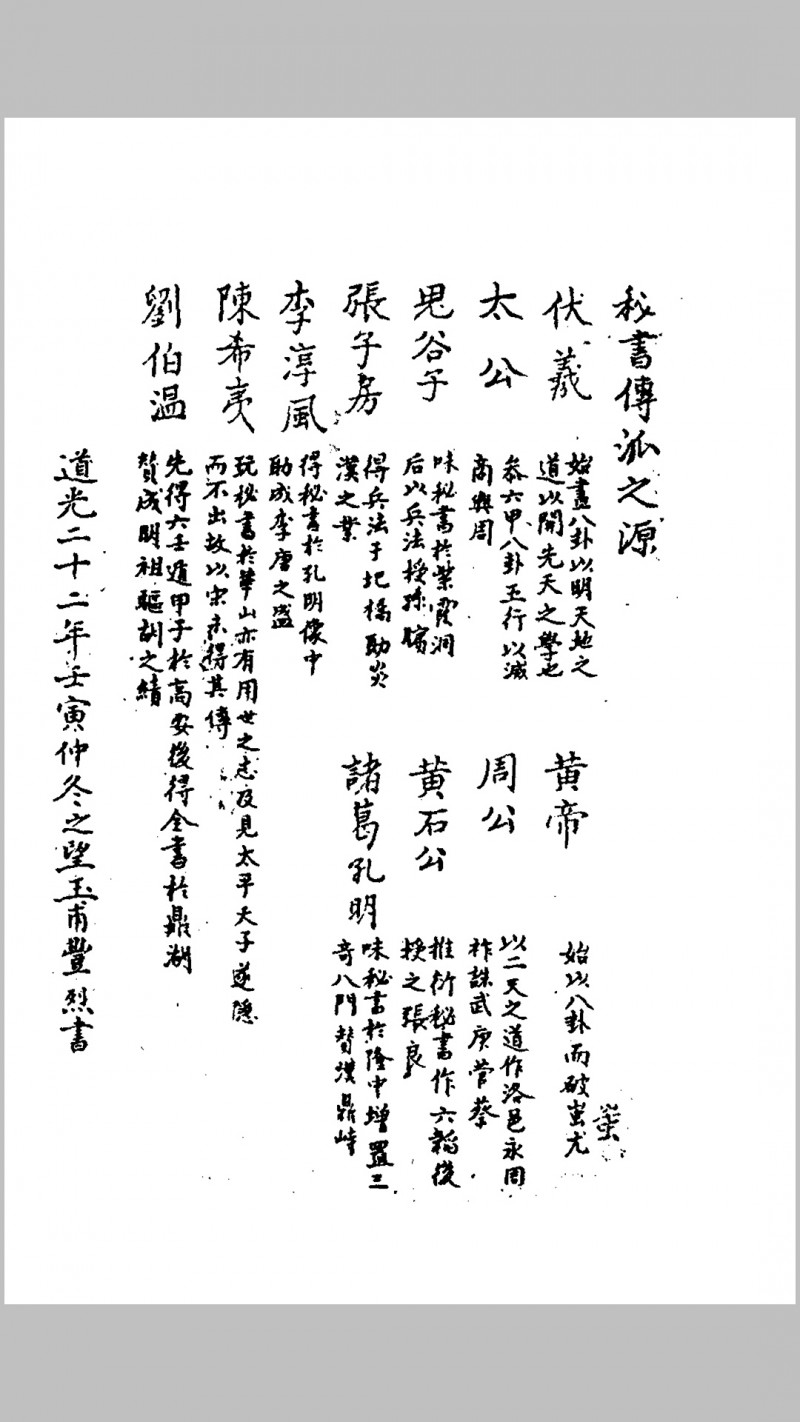 秘書傳派之源
伏羲
始畫八卦以明天地之
道以開先天之學也
黄帝
始以八卦而破蚩尤
蚩
太公
叅六甲八卦五行以滅
商興周
周公
以二天之道作洛邑永周
祚誅武庚管蔡
鬼谷子
味秘書於紫霞洞
后以兵法授孫臏
黄石公
推衍秘書作六韜後
授之張良
張子房
得兵法于圯橋助炎
漢之業
諸葛孔明
味秘書於隆中增置三
奇八門賛漢鼎峙
李淳風
得秘書於孔明像中
助成李唐之盛
陳希夷
玩秘書於華山亦有用世之志及見太平天子遂隱
而不出故以宋未得其傳
劉伯温
先得六壬遁甲子於高安後得全書於鼎湖
賛成明祖驅胡之績
道光二十二年壬寅仲冬之望玉甫豐烈書